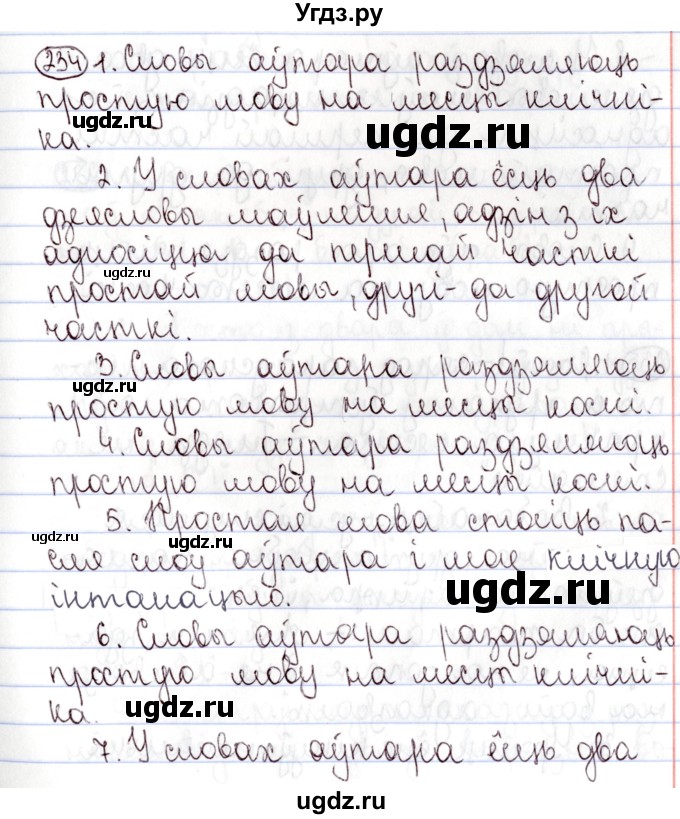 Угдз.ру
234 1. Словы аўтара раздзяляюць
простую мову на месцы клічні-
ка.
2. У словах аўтара ёсць два
дзеясловы маўлення адзін з іх
адносіцца да першай часткі
простай мовы, другі - да другой
часткі.
3. Словы аўтара раздзяляюць
простую мову на месцы коскі.
4. Словы аўтара раздзяляюць
простую мову на месцы коскі.
5. Простая мова стаіць па-
сля слоў аўтара і мае клічную
інтанацыю.
6. Словы аўтара раздзяляюць
простую мову на месцы клічні-
ка.
7. У словах аўтара ёсць два
ugdz.ru
ugdz.ru
ugdz.ru
ugdz.ru
ugdz.ru
ugdz.ru
ugdz.ru
ugdz.ru
ugdz.ru
ugdz.ru